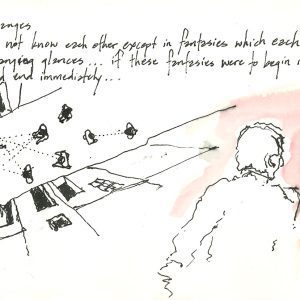 anges
not know each other except in fantasies which each
anging glances... if these fantasies were to begin
d end immediately...